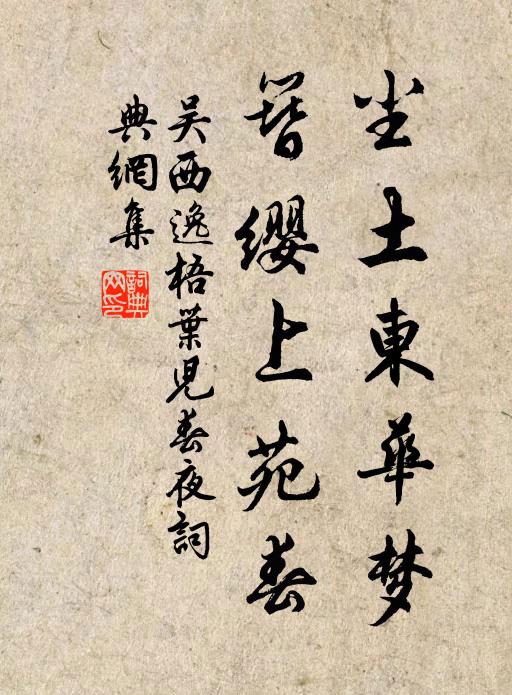 尘土東華梦
簪纓上苑春
吴西逸梧葉児春夜詞
典網集
詞典网印